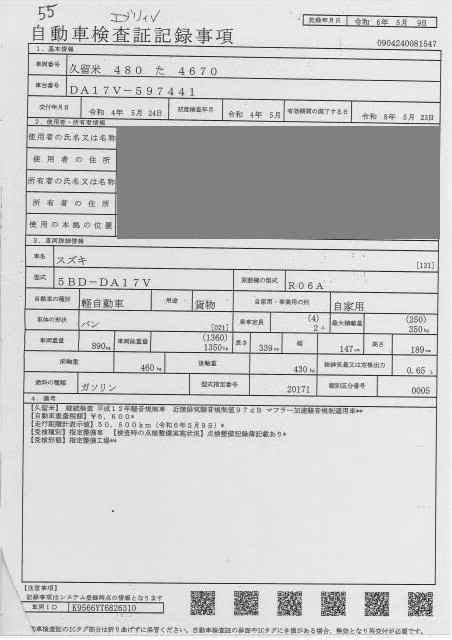 55
エブリィV
自動車検査証記録事項
記録年月日 令和 6年 5月 9日
0904240081547
1. 基本情報
車両番号 久留米 480 た 4670
車台番号 DA17V-597441
交付年月日 令和 4年 5月 24日 初度検査年月 令和 4年 5月 有効期間の満了する日 令和 8年 5月 23日
2. 使用者・所有者情報
使用者の氏名又は名称
使用者の住所
所有者の氏名又は名称
所有者の住所
使用の本拠の位置
3. 車両詳細情報
車名 スズキ [131]
型式 5BD-DA17V 原動機の型式 R06A
自動車の種別 軽自動車 用途 貨物 自家用・事業用の別 自家用
車体の形状 バン [021] 乗車定員 (4) 2人 最大積載量 (250) 350kg
車両重量 890kg 車両総重量 (1360) 1350kg 長さ 339cm 幅 147cm 高さ 189cm
前軸重 460kg 後軸重 430kg 総排気量又は定格出力 0.65 L
燃料の種類 ガソリン 型式指定番号 20171 類別区分番号 0005
4. 備考
【久留米】 継続検査 平成12年騒音規制車 近接排気騒音規制値97dB マフラー加速騒音規制適用車**
【自動車重量税額】¥6,600*
【走行距離計表示値】50,500km（令和6年5月9日）*
【受検種別】指定整備車 【検査時の点検整備実施状況】点検整備記録簿記載あり*
【受検形態】指定整備工場**
【注意事項】
記録事項はシステム登録時点の情報となります
車両ID K9566YT6826310
車検査証のICタグ部分は折り曲げずに保管ください。自動車検査証の券面やICタグに毀損がある場合、無効となり再交付が必要です。